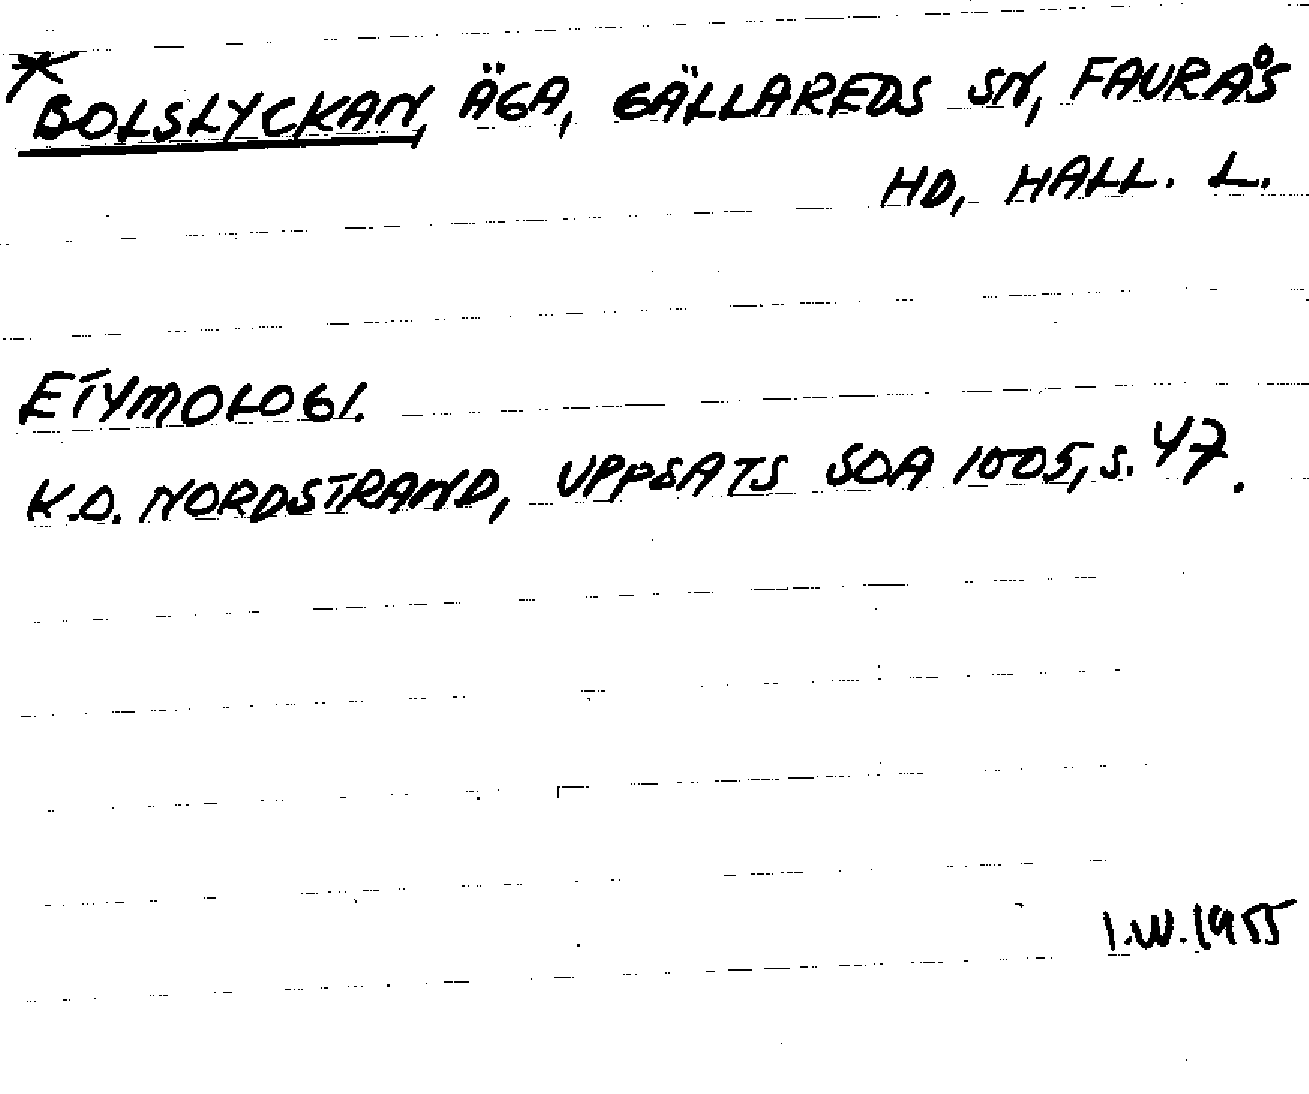 * BOLSLYCKAN, ÄGA, GÄLLAREDS SN, FAURÅS
HD, HALL. L.
ETYMOLOGI.
K.D. NORDSTRAND, UPPSATS SOA 1005, S. 47.
I.W. 1955